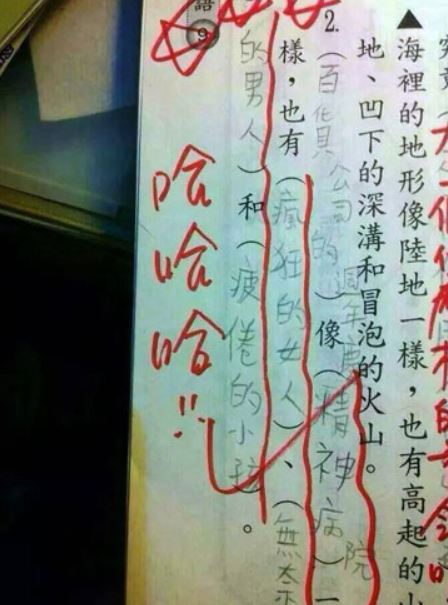 ▲海裡的地形像陸地一樣，也有高起的山
地、凹下的深溝和冒泡的火山。
2.（百貨公司的週年慶）像（精神病院）一
樣，也有（瘋狂的女人）、（無奈
的男人）和（疲倦的小孩）。
語 9
哈哈哈!!